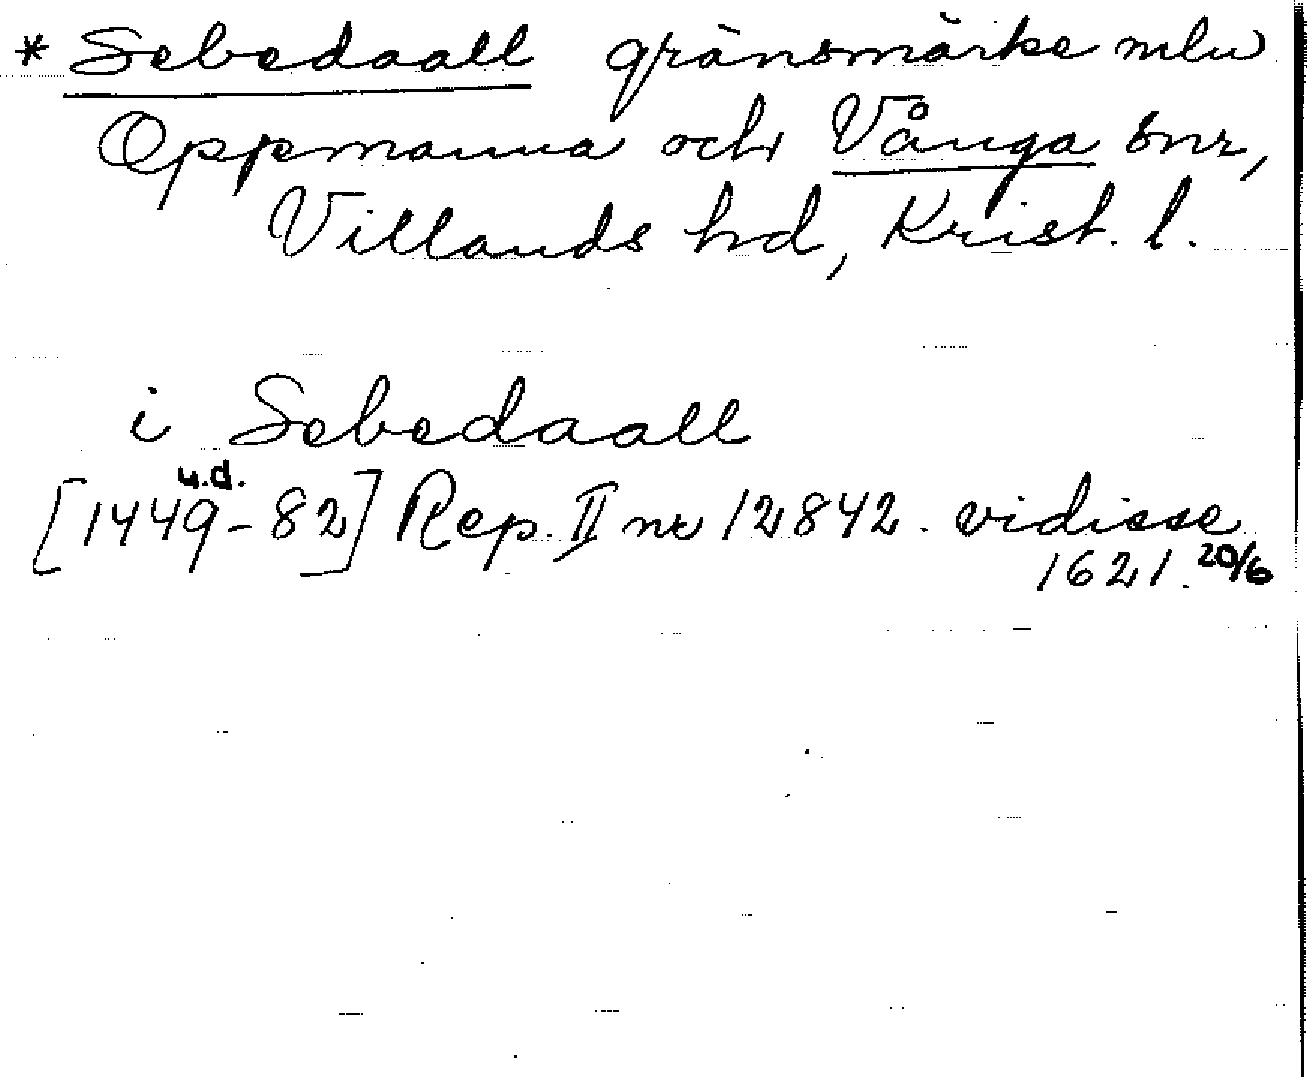 * Sebedaall gränsmärke mlw
Oppmanna och Vånga snr,
Villands hd, Krist. l.
i Sebedaall
u.d.
[1449-82] Rep. II nr 12842. vidisse
1621 20/6